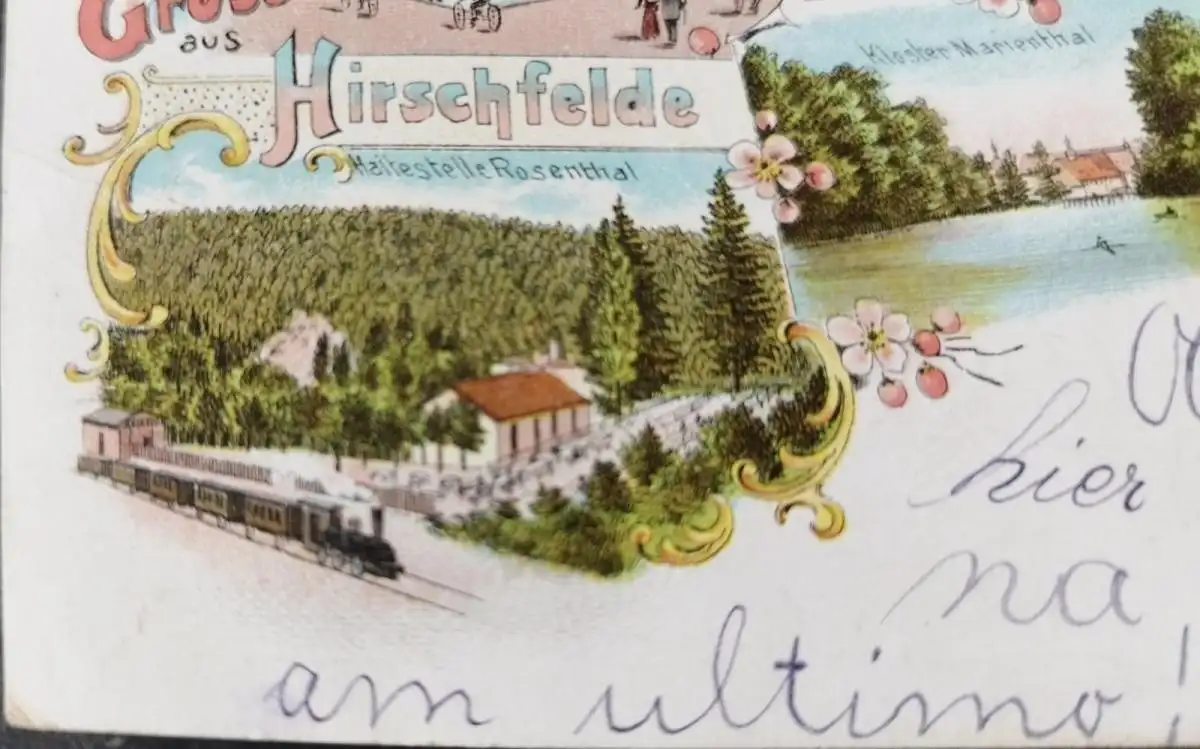 Gruss
aus
Hirschfelde
Haltestelle Rosenthal
Kloster Marienthal
hier
na
am ultimo!